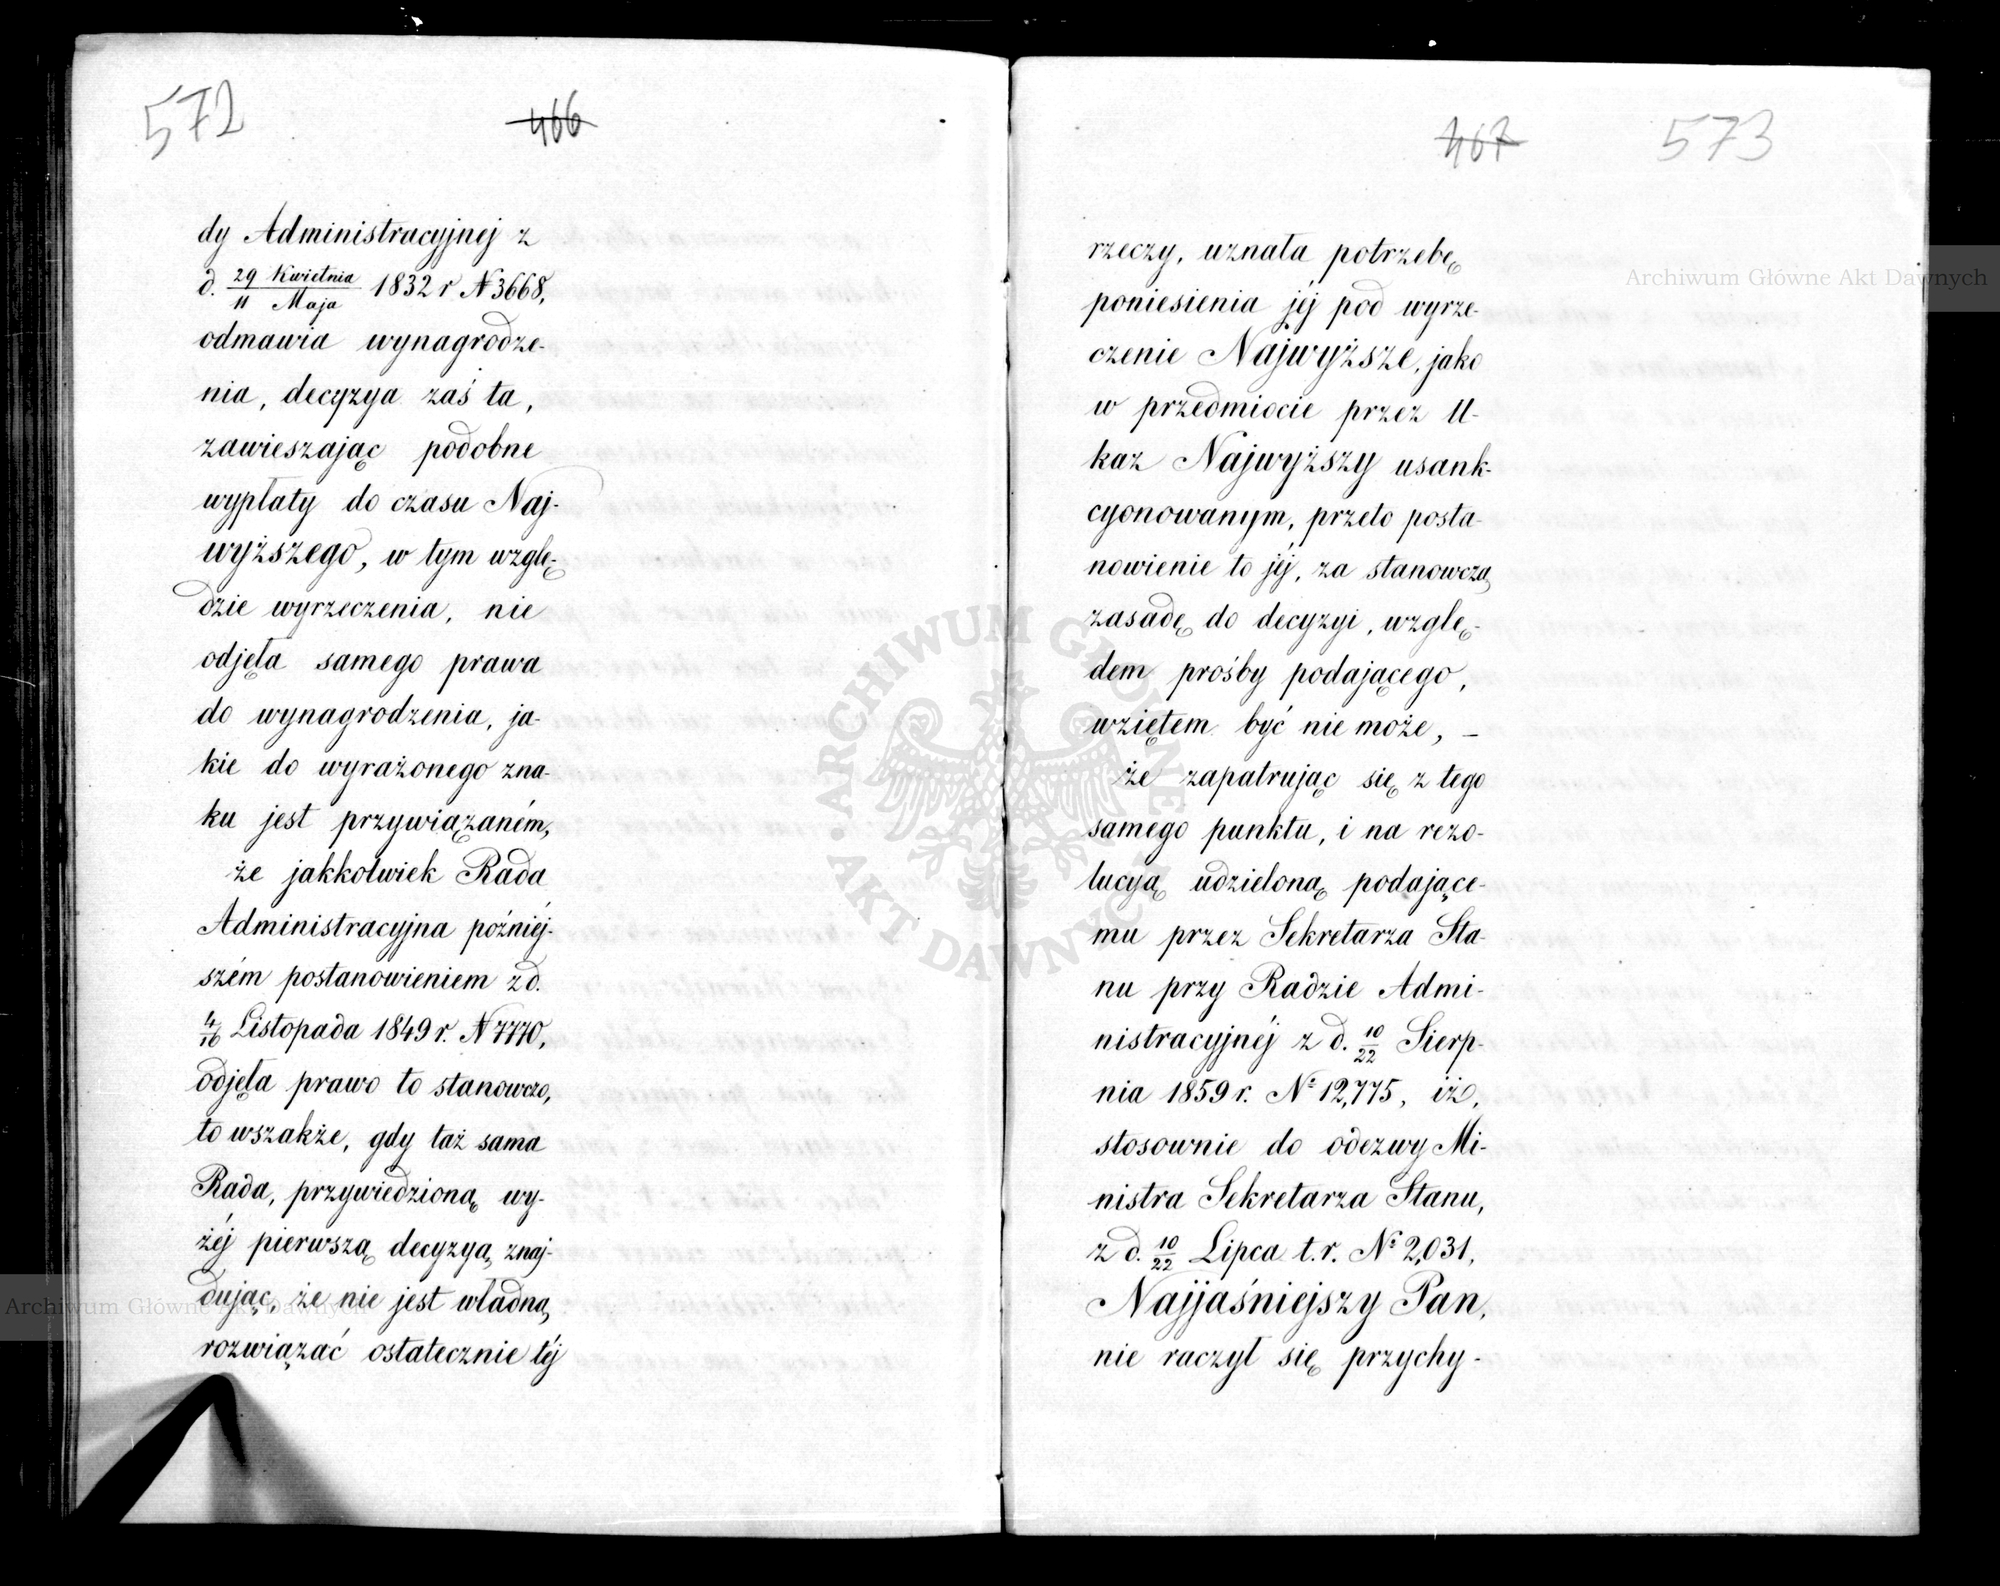 572
466
dy Administracyjnej z
d. 29 Kwietnia/11 Maja 1832 r N 3668,
odmawia wynagrodze-
nia, decyzya zaś ta,
zawieszając podobne
wypłaty do czasu Naj-
wyższego, w tym wzglę-
dzie wyrzeczenia, nie
odjęła samego prawa
do wynagrodzenia, ja-
kie do wyrażonego zna-
ku jest przywiązaném,
że jakkolwiek Rada
Administracyjna poźniéj-
szém postanowieniem z d.
4/16 Listopada 1849 r. N 7770,
odjęła prawo to stanowczo,
to wszakże, gdy taż sama
Rada, przywiedzioną wy-
żéj pierwszą decyzyą, znaj-
dując, że nie jest władną,
rozwiązać ostatecznie téj
467
573
rzeczy, uznała potrzebę
poniesienia jéj pod wyrze-
czenie Najwyższe, jako
w przedmiocie przez U-
kaz Najwyższy usank-
cyonowanym, przeto posta-
nowienie to jéj, za stanowczą
zasadę do decyzyi, wzglę-
dem prośby podającego,
wziętem być nie może, –
że zapatrując się z tego
samego punktu, i na rezo-
lucyą udzieloną podające-
mu przez Sekretarza Sta-
nu przy Radzie Admi-
nistracyjnéj z d. 10/22 Sierp-
nia 1859 r. Nº 12,775, iż,
stosownie do odezwy Mi-
nistra Sekretarza Stanu,
z d. 10/22 Lipca t. r. Nº 2,031,
Najjaśniejszy Pan,
nie raczył się przychy-
Archiwum Główne Akt Dawnych
Archiwum Główne Akt Dawnych
ARCHIWUM GŁÓWNE · AKT DAWNYCH ·